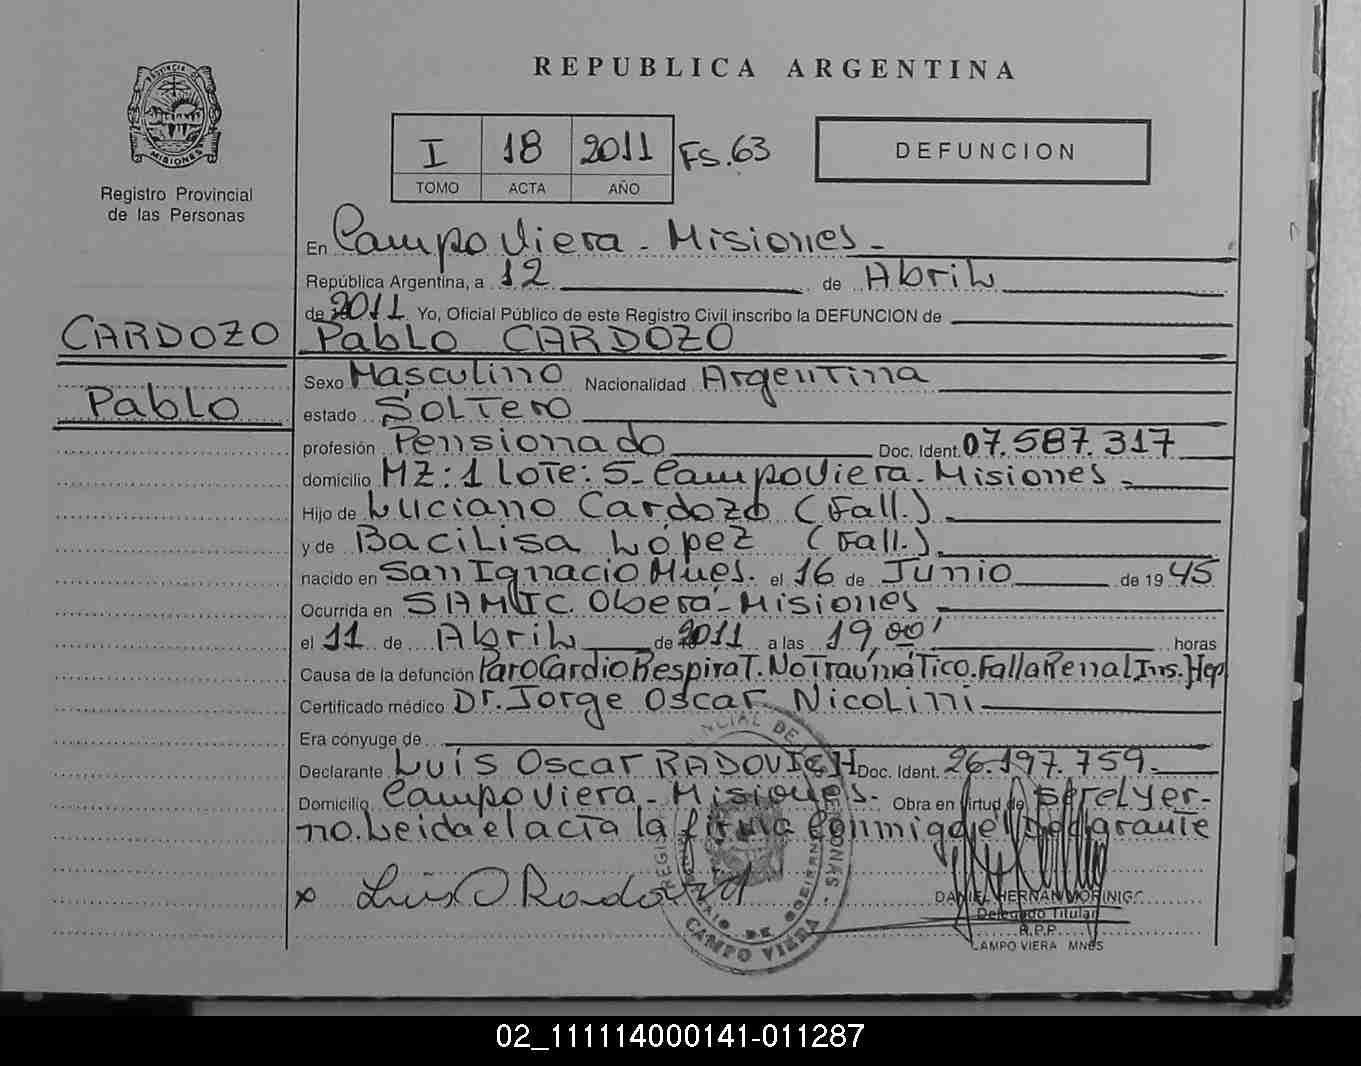 REPUBLICA ARGENTINA
PROVINCIA DE MISIONES
Registro Provincial
de las Personas
I 18 2011 Fs. 63
TOMO ACTA AÑO
DEFUNCION
En Campo Viera - Misiones -
República Argentina, a 12 de Abril
de 2011 Yo, Oficial Público de este Registro Civil inscribo la DEFUNCION de
CARDOZO Pablo CARDOZO
Sexo Masculino Nacionalidad Argentina
Pablo
estado Soltero
profesión Pensionado Doc. Ident. 07.587.317
domicilio MZ: 1 Lote: 5 - Campo Viera - Misiones -
Hijo de Luciano Cardozo (Fall.)
y de Bacilisa López (Fall.)
nacido en San Ignacio Mnes. el 16 de Junio de 1945
Ocurrida en SAMIC. Oberá - Misiones
el 11 de Abril de 2011 a las 19,00' horas
Causa de la defunción Paro Cardio Respirat. No Traumático. Falla Renal Ins. Hep
Certificado médico Dr. Jorge Oscar Nicolini
Era cónyuge de
Declarante Luis Oscar RADOVICH Doc. Ident. 26.197.759.
Domicilio Campo Viera - Misiones - Obra en virtud de ser el yer-
no. Leida el acta la firma conmigo el declarante
x Luis O Radovich
DANIEL HERNAN MORINIGO
Delegado Titular
R.P.P.
CAMPO VIERA MNES
CAMPO VIERA
02_111114000141-011287